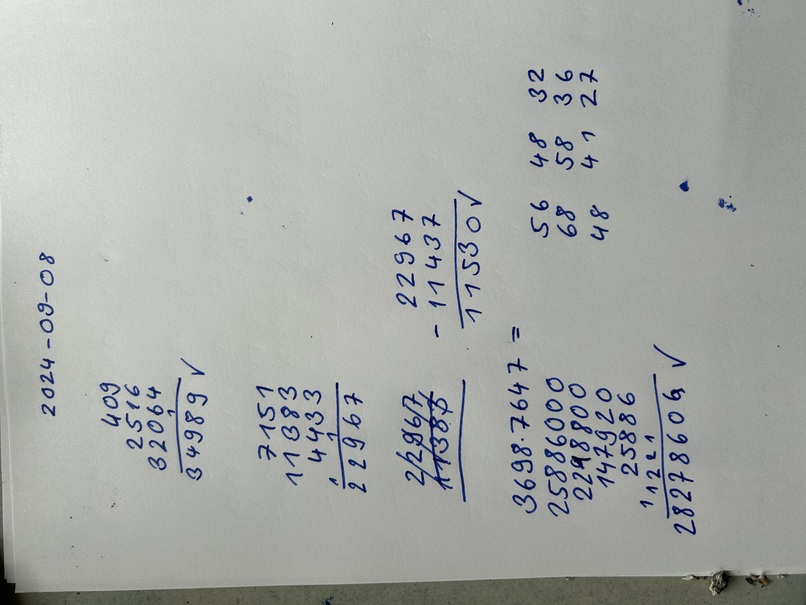 2024-09-08
409
2516
32064
1
34989 √
7151
11383
4433
1 1
22967
22967
11383
22967
- 11437
11530 √
3698·7647 =
25886000
2218800
147920
25886
1 1221
28278606 √
56 48 32
68 58 36
48 41 27